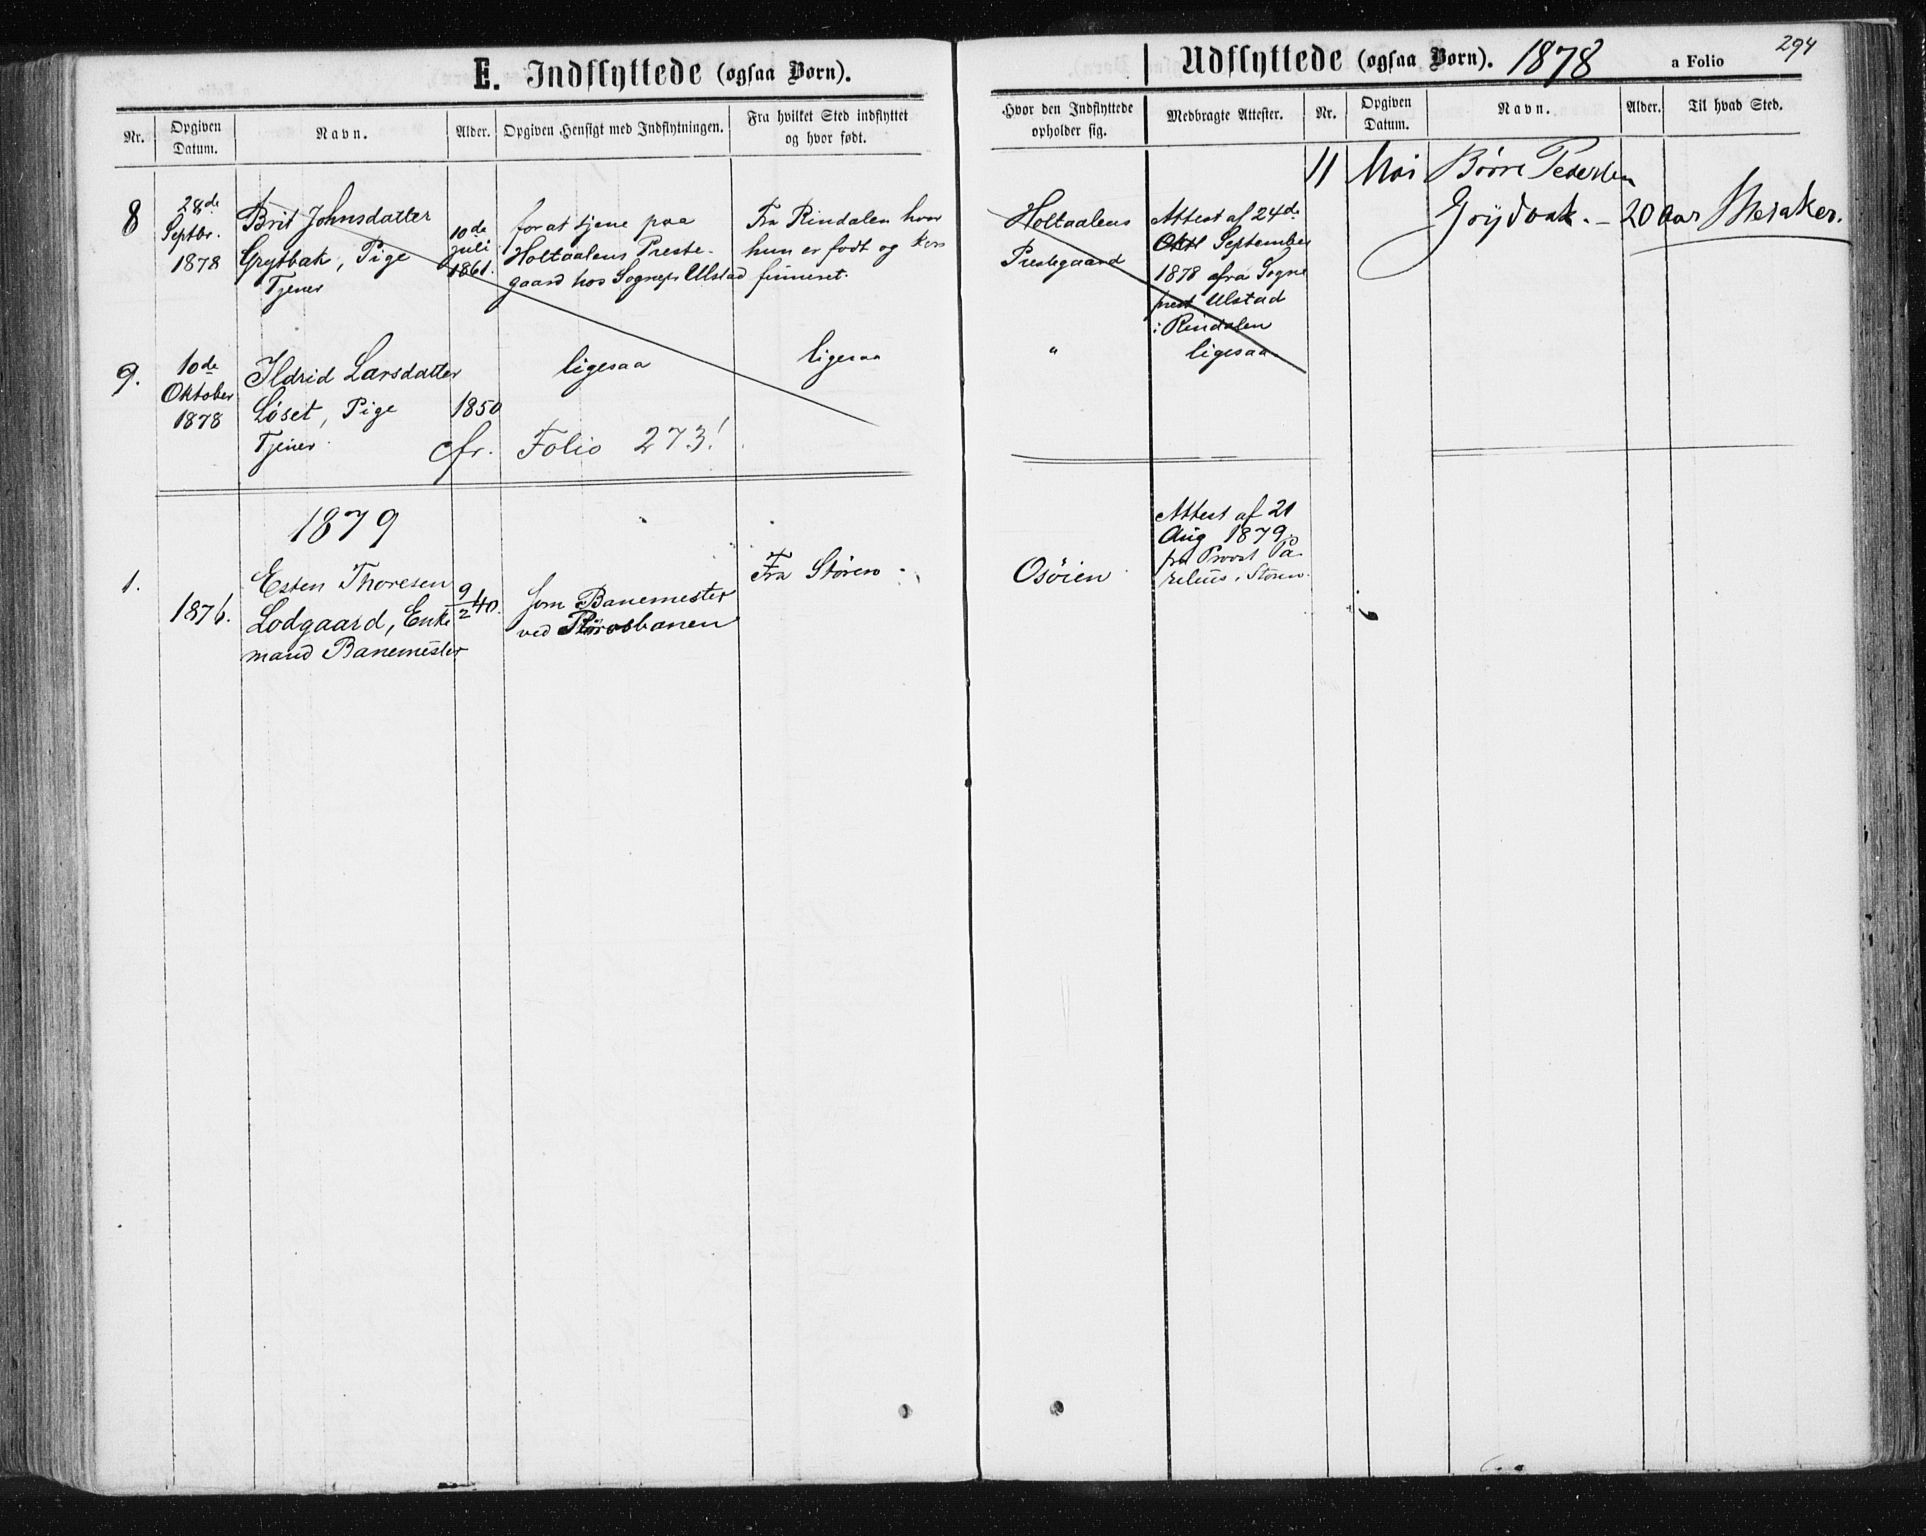 E. Indflyttede (ogsaa Børn).
Nr.
Opgiven
Datum.
Navn.
Alder.
Opgiven Hensigt med Indflytningen.
Fra hvilket Sted indflyttet
og hvor født.
8
28de
Septbr.
1878
Brit Johnsdatter
Grytbak, Pige
Tjener
10de
juli
1861.
for at tjene paa
Holtaalens Preste-
gaard hos Sognepr Ulstad
Fra Rindalen hvor
hun er født og kon
firmeret.
9.
10de
Oktober
1878
Ildrid Larsdatter
Løset, Pige
Tjener.
1850
ligesaa
ligesaa
cfr. Folio 273!
1879
1.
1876.
Esten Thoresen
Lodgaard, Enke
mand Banemester
9/2 40.
som Banemester
ved Rørosbanen
Fra Støren.
Udflyttede (ogsaa Børn). 1878
a Folio
294
Hvor den Indflyttede
opholder sig.
Medbragte Attester.
Nr.
Opgiven
Datum.
Navn.
Alder.
Til hvad Sted.
Holtaalens
Prestegaard
Attest af 24de
Okt September
1878 fra Sogne
prest Ulstad
i Rindalen
"
ligesaa
11
Mai
Børre Pedersen
Grydbak. –
20 Aar
Meraker.
Osøien
Attest af 21
Aug 1879
fra Provst Pa
relius i Støren.